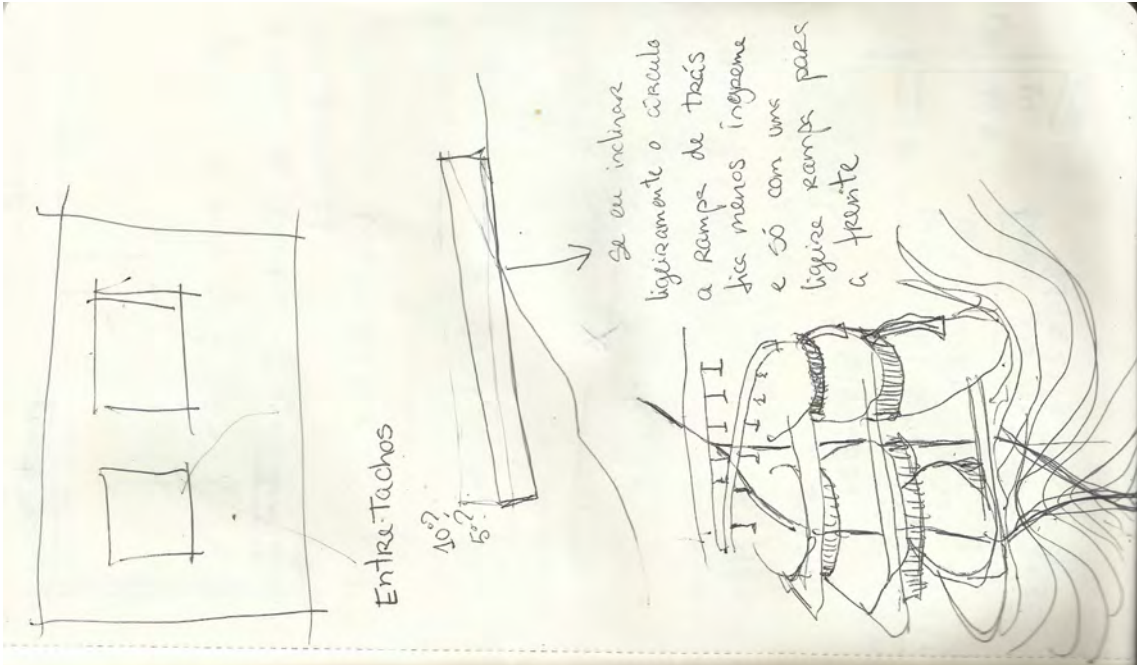 Entre-Tachos
10%
5%?
Se eu inclinar
ligeiramente o círculo
a rampa de trás
fica menos íngreme
e só com uma
ligeira rampa para
a frente